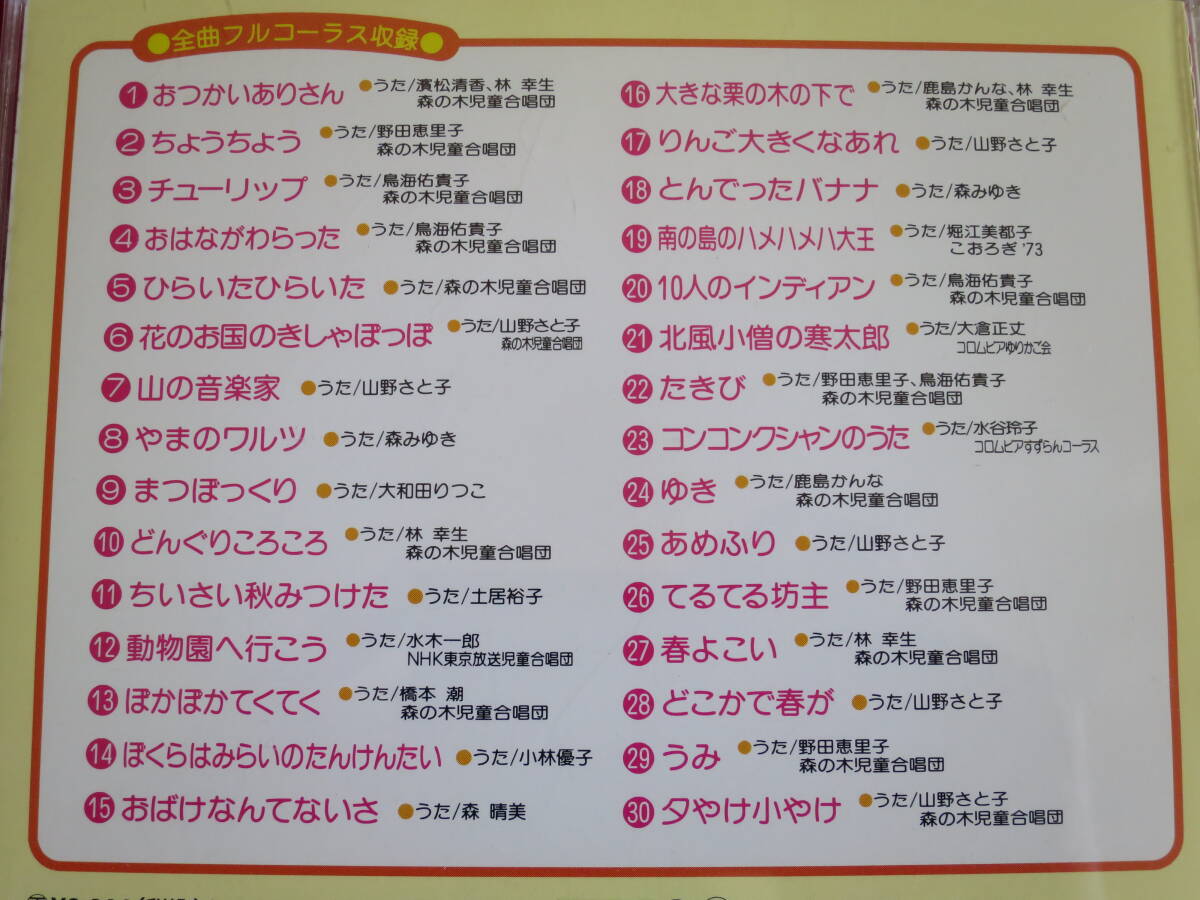 ●全曲フルコーラス収録●
1 おつかいありさん ●うた/濱松清香、林 幸生
森の木児童合唱団
2 ちょうちょう ●うた/野田恵里子
森の木児童合唱団
3 チューリップ ●うた/鳥海佑貴子
森の木児童合唱団
4 おはながわらった ●うた/鳥海佑貴子
森の木児童合唱団
5 ひらいたひらいた ●うた/森の木児童合唱団
6 花のお国のきしゃぽっぽ ●うた/山野さと子
森の木児童合唱団
7 山の音楽家 ●うた/山野さと子
8 やまのワルツ ●うた/森みゆき
9 まつぼっくり ●うた/大和田りつこ
10 どんぐりころころ ●うた/林 幸生
森の木児童合唱団
11 ちいさい秋みつけた ●うた/土居裕子
12 動物園へ行こう ●うた/水木一郎
NHK東京放送児童合唱団
13 ぽかぽかてくてく ●うた/橋本 潮
森の木児童合唱団
14 ぼくらはみらいのたんけんたい ●うた/小林優子
15 おばけなんてないさ ●うた/森 晴美
16 大きな栗の木の下で ●うた/鹿島かんな、林 幸生
森の木児童合唱団
17 りんご大きくなあれ ●うた/山野さと子
18 とんでったバナナ ●うた/森みゆき
19 南の島のハメハメハ大王 ●うた/堀江美都子
こおろぎ'73
20 10人のインディアン ●うた/鳥海佑貴子
森の木児童合唱団
21 北風小僧の寒太郎 ●うた/大倉正丈
コロムビアゆりかご会
22 たきび ●うた/野田恵里子、鳥海佑貴子
森の木児童合唱団
23 コンコンクシャンのうた ●うた/水谷玲子
コロムビアすずらんコーラス
24 ゆき ●うた/鹿島かんな
森の木児童合唱団
25 あめふり ●うた/山野さと子
26 てるてる坊主 ●うた/野田恵里子
森の木児童合唱団
27 春よこい ●うた/林 幸生
森の木児童合唱団
28 どこかで春が ●うた/山野さと子
29 うみ ●うた/野田恵里子
森の木児童合唱団
30 夕やけ小やけ ●うた/山野さと子
森の木児童合唱団